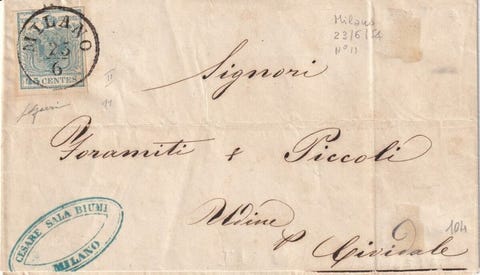 MILANO
23
6
45 CENTES
Milano
23/6/54
N° 11
II
11
Signori
Foramiti & Piccoli
Udine
p Cividale
104
CESARE SALA BIUMI
MILANO